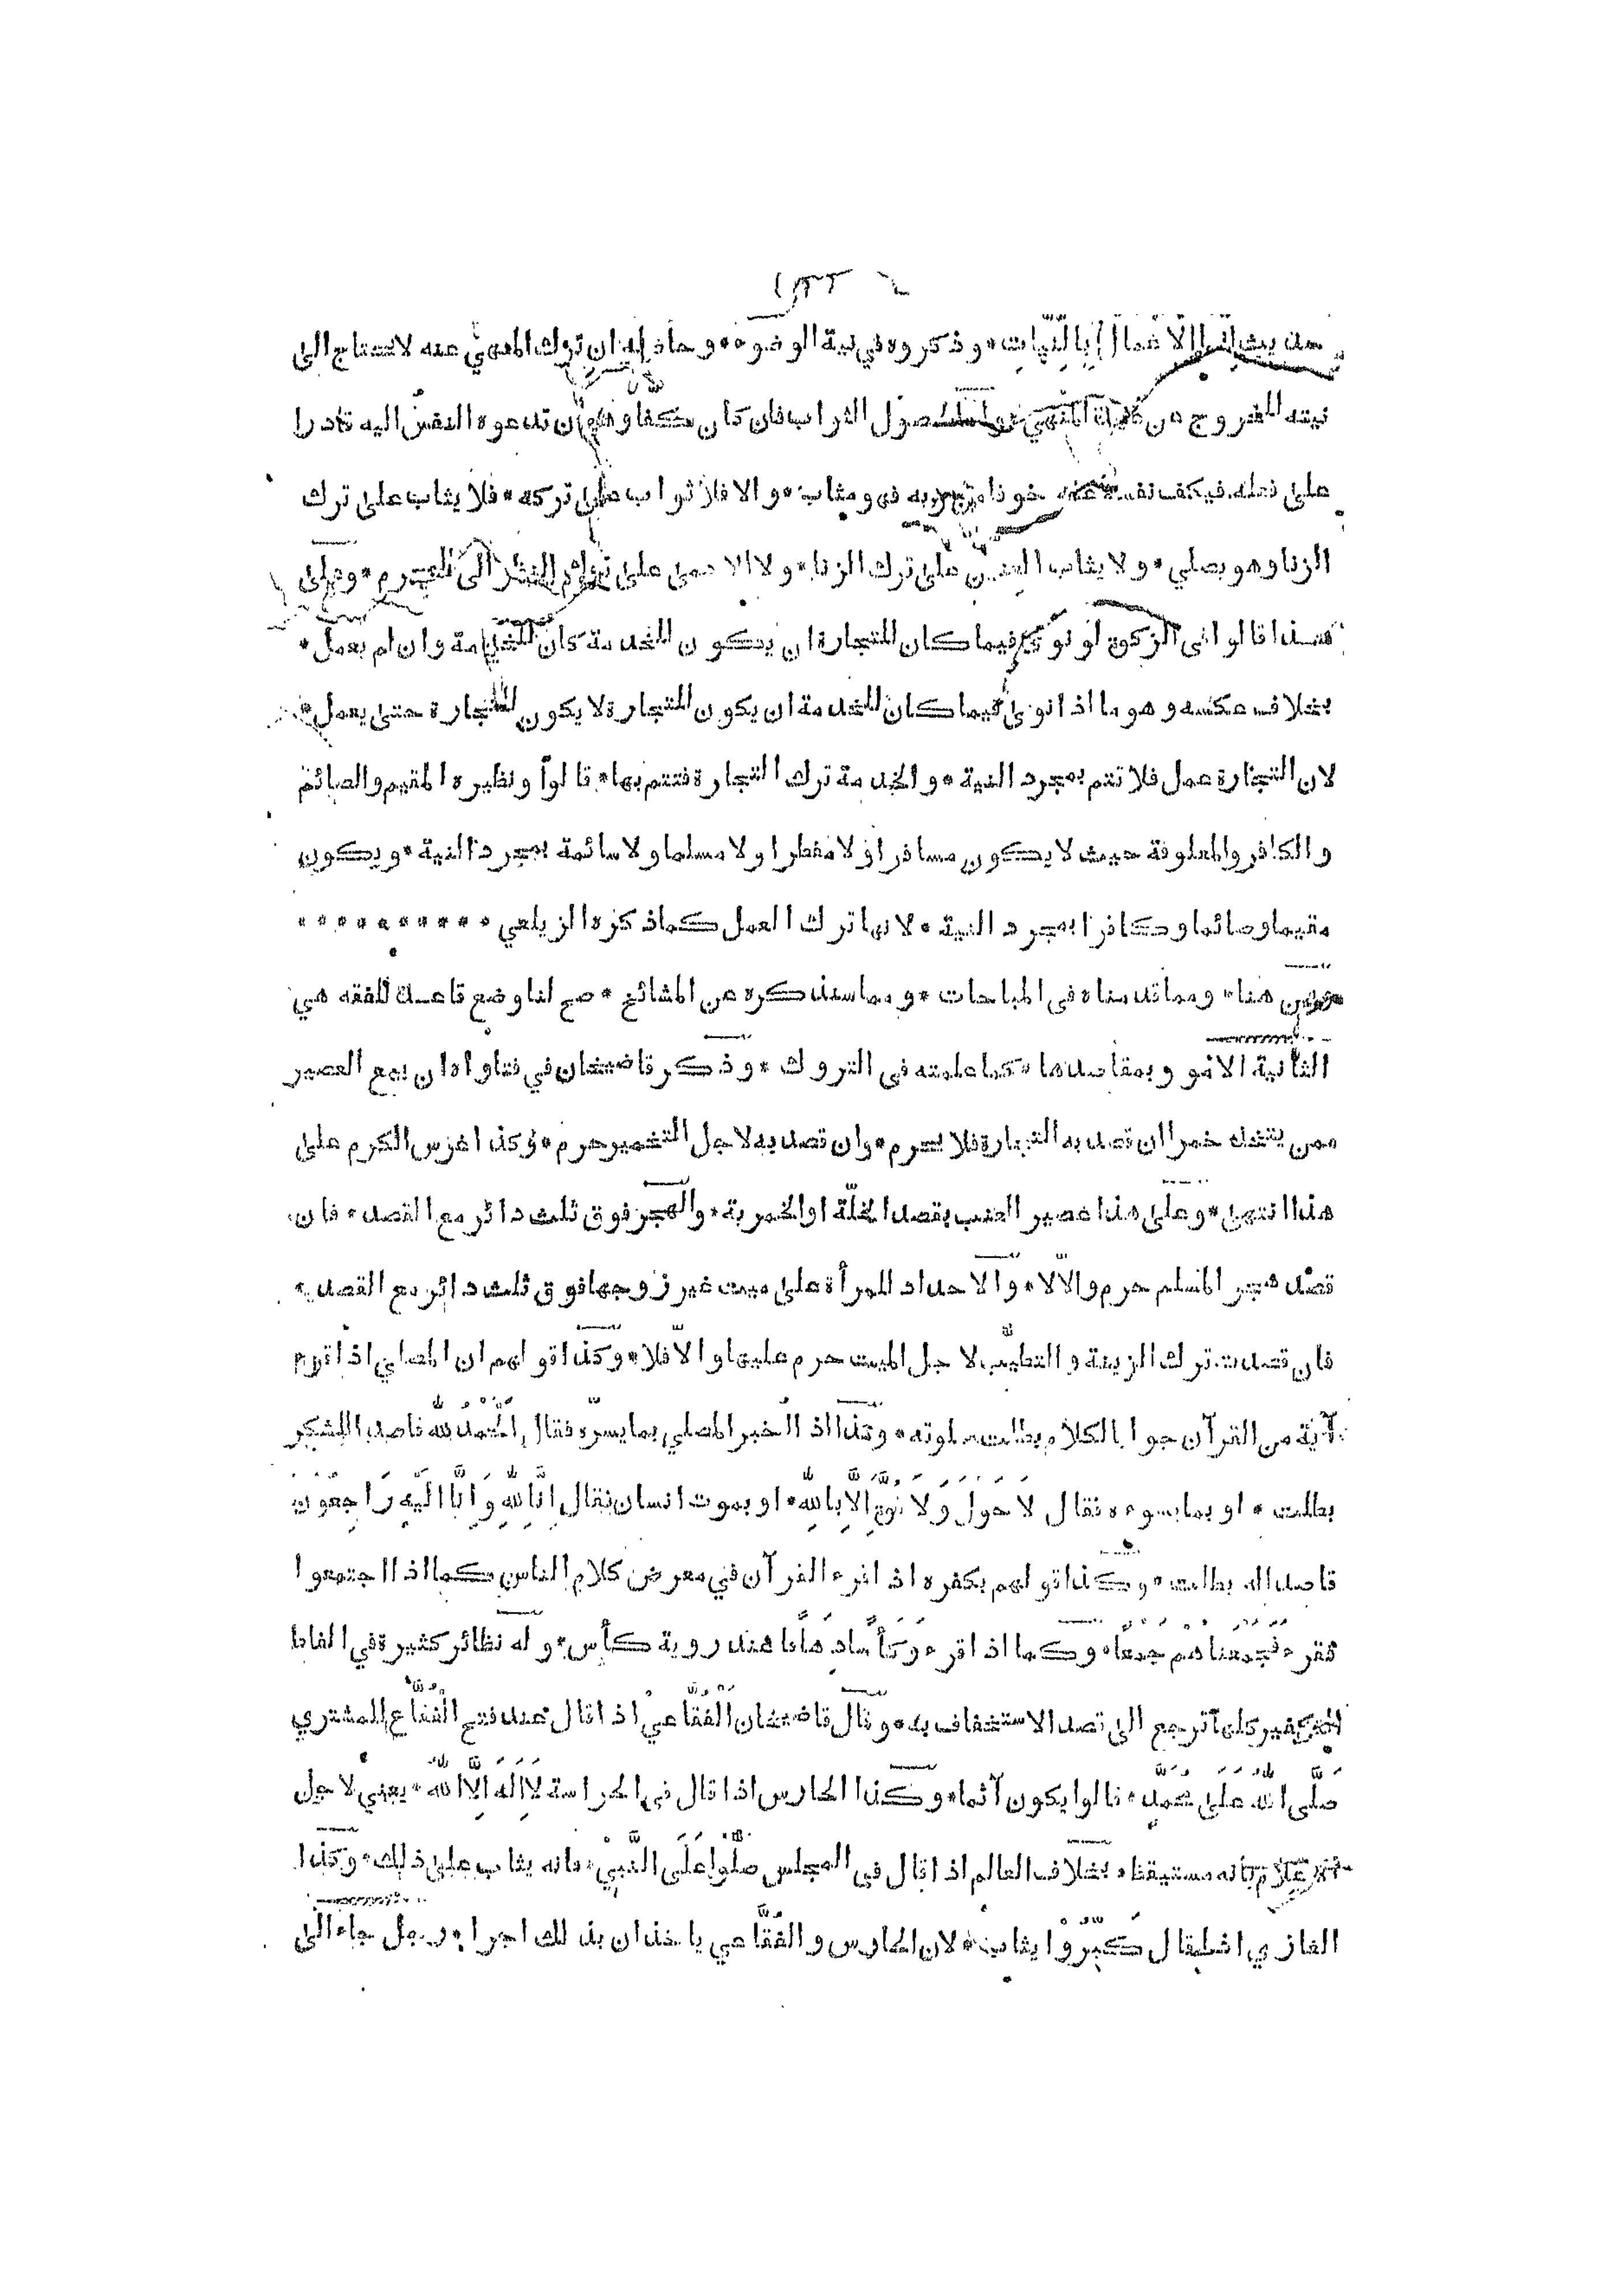 حديث إِنَّمَا الْاَعْمَالُ بِالنِّيَّاتِ * وذكروه في نية الوضوء * وحاصله ان ترك المنهي عنه لا يحتاج الى
نيته للخروج عن عهدة المنهي واما لحصول الثواب فان كان كفا وهو ان تدعوه النفس اليه قادرا
على فعله فيكف نفسه عنه خوفا من ربه فهو مثاب * والا فلا ثواب على تركه * فلا يثاب على ترك
الزنا وهو يصلي * ولا يثاب العنين على ترك الزنا * ولا الاعمى على ترك النظر الى المحرم * وعلى
هذا قالوا في الزكوة لو نوى فيما كان للتجارة ان يكون للخدمة كان للخدمة وان لم يعمل *
بخلاف عكسه وهو ما اذا نوى فيما كان للخدمة ان يكون للتجارة لا يكون للتجارة حتى يعمل *
لان التجارة عمل فلا تتم بمجرد النية * والخدمة ترك التجارة فتتم بها * قالوا ونظيره المقيم والصائم
والكافر والمعلوفة حيث لا يكون مسافرا ولا مفطرا ولا مسلما ولا سائمة بمجرد النية * ويكون
مقيما وصائما وكافرا بمجرد النية * لانها ترك العمل كما ذكره الزيلعي * * * * * * * * * * *
ومن هنا * ومما قدمناه في المباحات * ومما سنذكره عن المشائخ * صح لنا وضع قاعدة للفقه هي
الثانية الامور بمقاصدها * كما علمته في التروك * وذكر قاضيخان في فتاواه ان بيع العصير
ممن يتخذه خمرا ان قصد به التجارة فلا يحرم * وان قصد به لاجل التخمير حرم * وكذا غرس الكرم على
هذا انتهى * وعلى هذا عصير العنب بقصد الخلّة او الخمرية * والهجر فوق ثلث دائر مع القصد * فان
قصد هجر المسلم حرم والّا لا * والاحداد للمرأة على ميت غير زوجها فوق ثلث دائر مع القصد *
فان قصدت ترك الزينة والتطيّب لاجل الميت حرم عليها والّا فلا * وكذا قولهم ان المصلي اذا قرء
آية من القرآن جوابا لكلام بطلت صلوته * وكذا اذا اخبر المصلي بما يسرّه فقال اَلْحَمْدُ لِلّٰهِ قاصدا للشكر
بطلت * او بما يسوءه فقال لَا حَوْلَ وَلَا قُوَّةَ اِلَّا بِاللّٰهِ * او بموت انسان فقال اِنَّا لِلّٰهِ وَاِنَّا اِلَيْهِ رَاجِعُوْنَ
قاصدا له بطلت * وكذا قولهم بكفره اذا قرء القرآن في معرض كلام الناس كما اذا اجتمعوا
فقرء فَجَمَعْنَاهُمْ جَمْعًا * وكما اذا قرء وَكَأْسًا دِهَاقًا عند روية كأس * وله نظائر كثيرة في الفاظ
التكفير كلها ترجع الى قصد الاستخفاف به * وقال قاضيخان اَلْفُقَّاعِيْ اذا قال عند فتح الْفُقَّاع للمشتري
صَلَّى اللّٰهُ عَلٰى مُحَمَّدٍ * قالوا يكون آثما * وكذا الحارس اذا قال في الحراسة لَا اِلٰهَ اِلَّا اللّٰهُ * يعني لاجل
بانه مستيقظ * بخلاف العالم اذا قال في المجلس صَلُّوْا عَلَى النَّبِيِّ * فانه يثاب على ذلك * وكذا
الغازي اذا قال كَبِّرُوْا يثاب * لان الحارس والفُقَّاعي ياخذان بذلك اجرا * رجل جاء الى